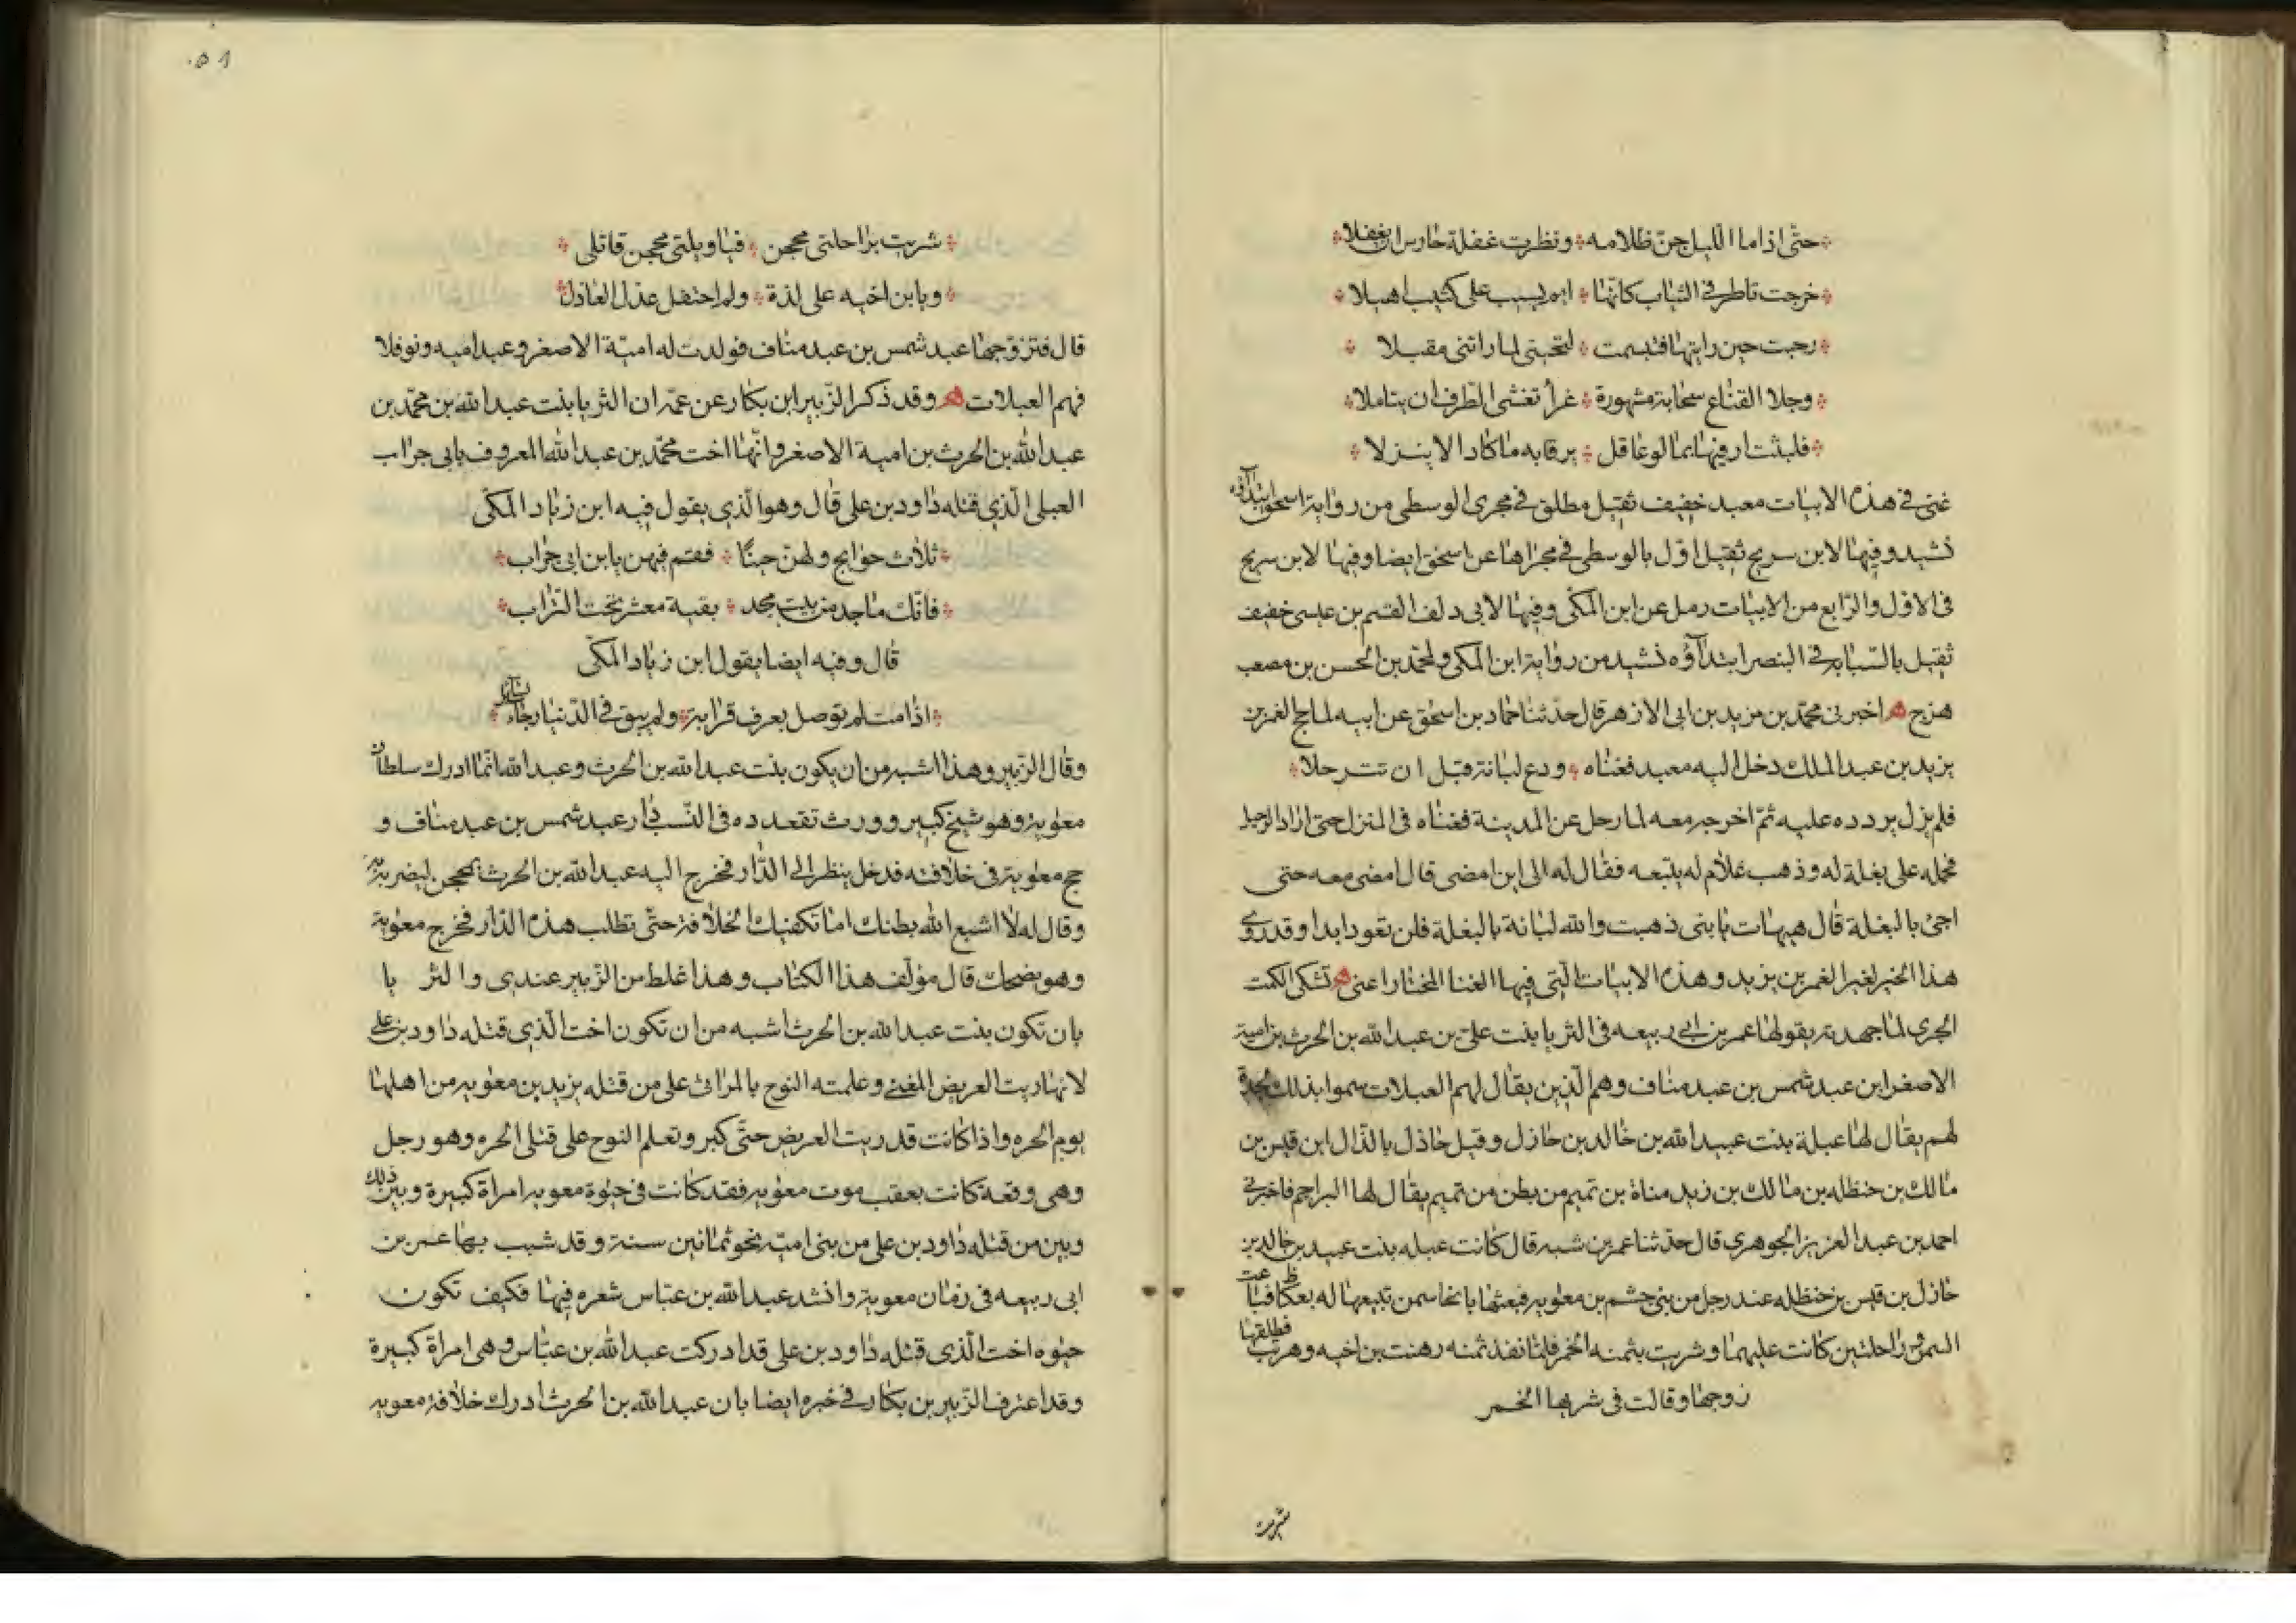 حتّى اذا ما اللّيل جنّ ظلامه ونظرت غفلة حارس ان يغفلا
خرجت تاطر في الثياب كانّها ايم يسيب على كثيب اهيلا
رحبت حين رايتها فتبسمت لتحيتي لما راتني مقبلا
وجلا القناع سحابة مشهورة غرأ تغشى الطّرف ان يتاملا
فلبثت ارقيها بما لو عاقل يرقا به ما كاد الا ينزلا
غنى في هذه الابيات معبد خفيف ثقيل مطلق في مجرى الوسطى من رواية اسحق ابتدآؤه
نشيد وفيها لابن سريج ثقيل اوّل بالوسطى في مجراها عن اسحق ايضا وفيها لابن سريج
في الاوّل والرّابع من الابيات رمل عن ابن المكّي وفيها لابي دلف القسم بن عيسى خفيف
ثقيل بالسّبّابة في البنصر ابتدآؤه نشيد من رواية ابن المكي ولمحمّد بن الحسن بن مصعب
هزج ه اخبرني محمّد بن مزيد بن ابى الازهر قال حدّثنا حماد بن اسحق عن ابيه لما حج الغمر بن
يزيد بن عبد الملك دخل اليه معبد فغنّاه ودع لبانة قبل ان تترحلا
فلم يزل يردده عليه ثمّ اخرجه معه لما رحل عن المدينة فغنّاه في المنزل حتى اراد الرحيل
فحمله على بغلة له وذهب غلام له يتبعه فقال له الى اين امضى قال امضي معه حتى
اجئ بالبغلة قال هيهات يا بنى ذهبت والله لبانة بالبغلة فلن تعود ابدا وقد روى
هذا الخبر لغير الغمر بن يزيد وهذه الابيات الّتي فيها الغنا المختار اعني ه تشكى الكمت
الجرى لما جهدته يقولها عمر بن ابي ربيعه في الثريا بنت علي بن عبد الله بن الحرث بن امية
الاصغر ابن عبد شمس بن عبد مناف وهم الّذين يقال لهم العبلات سموا بذلك لجدة
لهم يقال لها عبلة بنت عبيد الله بن خالد بن خازل وقيل خاذل بالذّال ابن قيس بن
مالك بن حنظله بن مالك بن زيد مناة بن تميم من بطن من تميم يقال لها البراجم فاخبرني
احمد بن عبد العزيز الجوهري قال حدّثنا عمر بن شبه قال كانت عبله بنت عبيد بن خالد بن
خازل بن قيس بن حنظله عند رجل من بنى جشم بن معوية فبعثها بانحا سمن تبيعها له بعكاظ فباعت
السمن وراحلتين كانت عليهما وشربت بثمنه الخمر فلمّا نفذ ثمنه رهنت بن اخيه وهربت فطلقها
زوجها وقالت في شربها الخمر
شربت
٥١
شربت براحلتى محجن فيا ويلتي محجن قاتلي
وبابن اخيه على لذة ولم احتفل عذل العاذل
قال فتزوّجها عبد شمس بن عبد مناف فولدت له اميّة الاصغر وعبد اميه ونوفلا
فهم العبلات ه وقد ذكر الزّبير ابن بكار عن عمّه ان الثريا بنت عبد الله بن محمّد بن
عبد الله بن الحرث بن امية الاصغر وانّها اخت محمّد بن عبد الله المعروف بابي جراب
العبلى الّذي قتله داود بن علي قال وهو الّذي يقول فيه ابن زياد المكّى
ثلاث حوايج ولهن جينًا فقم فيهن يا بن ابى جراب
فانّك ماجد من بيت مجد بقية معشر تحت التّراب
قال وفيه ايضا يقول ابن زياد المكّى
اذا مت لم توصل بعرف قرابة ولم يبق في الدّنيا رجاء لسائل
وقال الزّبير وهذا اشبه من ان يكون بنت عبد الله بن الحرث وعبد الله انّما ادرك سلطان
معوية وهو شيخ كبير وورث تقعدده في النّسب دار عبد شمس بن عبد مناف و
حج معوية في خلافته فدخل ينظر الى الدّار فخرج اليه عبد الله بن الحرث بمحجن ليضربه به
وقال له لا اشبع الله بطنك اما تكفيك الخلافة حتّى تطلب هذه الدّار فخرج معوية
وهو يضحك قال مؤلّف هذا الكتاب وهذا غلط من الزّبير عندي والثر يا
بان تكون بنت عبد الله بن الحرث اشبه من ان تكون اخت الّذي قتله داود بن علي
لانها ربت الغريض المغني وعلمته النوح بالمراثى على من قتله يزيد بن معوية من اهلها
يوم الحره واذا كانت قد ربت الغريض حتّى كبر وتعلم النوح على قتلى الحره وهو رجل
وهي وقعة كانت بعقب موت معوية فقد كانت في حيوة معوية امراة كبيرة وبين ذلك
وبين من قتله داود بن علي من بنى اميّة نحو ثمانين سنة وقد شبب بها عمر بن
ابى ربيعه فى زمان معوية وانشد عبد الله بن عبّاس شعره فيها فكيف تكون
حيوه اخت الّذى قتله داود بن على قد ادركت عبد الله بن عبّاس وهى امراة كبيرة
وقد اعترف الزّبير بن بكار في خبره ايضا بان عبد الله بن الحرث ادرك خلافة معوية